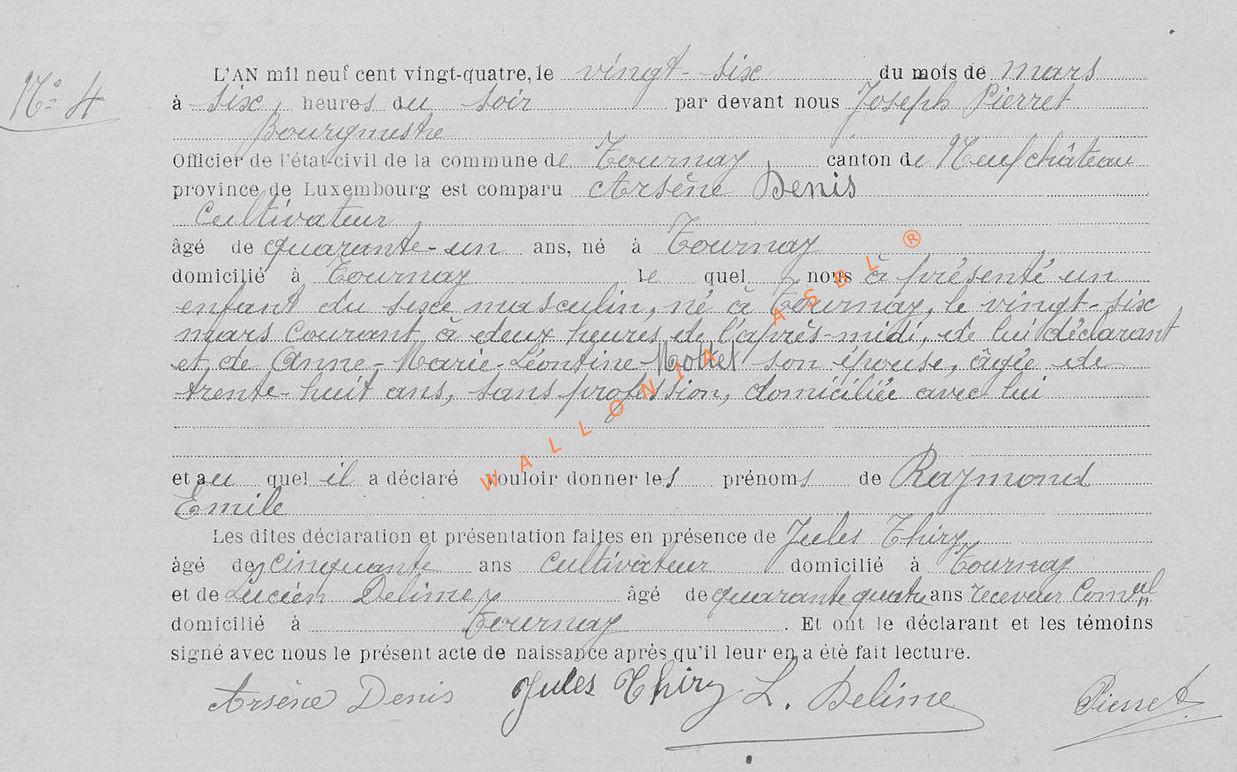 N° 4
L'AN mil neuf cent vingt-quatre, le vingt-six du mois de mars
à six, heures du soir par devant nous Joseph Pierret
Bourgmestre
Officier de l'état-civil de la commune de Tournay canton de Neufchâteau
province de Luxembourg est comparu Arsène Denis
Cultivateur
âgé de quarante-un ans, né à Tournay
domicilié à Tournay le quel nous à présenté un
enfant du sexe masculin, né à Tournay, le vingt-six
mars courant à deux heures de l'après-midi, de lui déclarant
et de Anne-Marie-Léontine-Mottet son épouse, âgée de
trente-huit ans, sans profession, domiciliée avec lui
et au quel il a déclaré vouloir donner les prénoms de Raymond
Emile
Les dites déclaration et présentation faites en présence de Jules Thiry
âgé de cinquante ans Cultivateur domicilié à Tournay
et de Lucien Delime âgé de quarante quatre ans receveur Comal
domicilié à Tournay. Et ont le déclarant et les témoins
signé avec nous le présent acte de naissance après qu'il leur en a été fait lecture.
Arsène Denis Jules Thiry L. Delime Pierret
WALLONIA ASBL ®